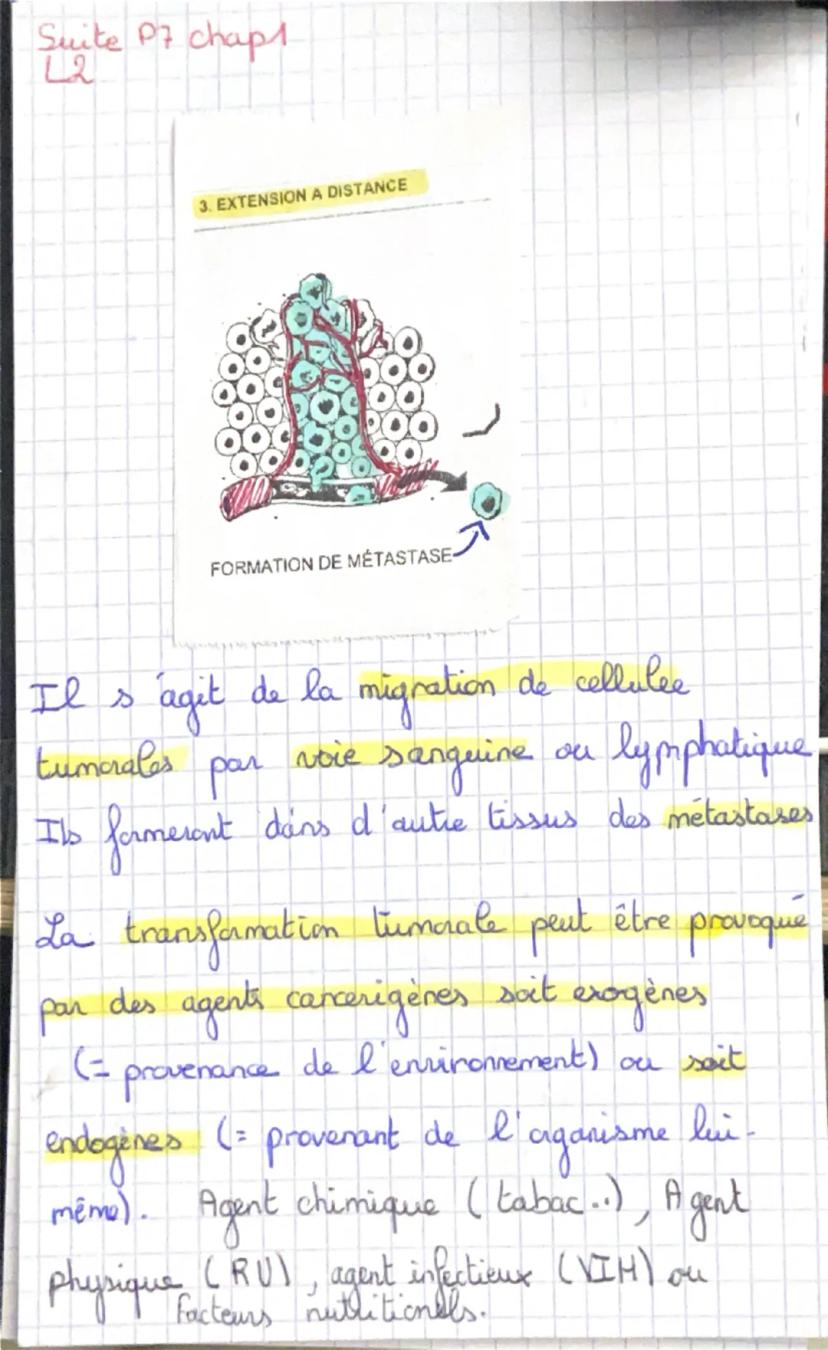 Suite P7 chap1
L2
3. EXTENSION A DISTANCE
FORMATION DE MÉTASTASE
Il s'agit de la migration de cellulee
tumorales par voie sanguine ou lymphatique
Ils formeront dans d'autre tissus des métastases
La transformation tumorale peut être provoqué
par des agents cancerigènes soit exogènes
(= provenance de l'environnement) ou soit
endogènes (= provenant de l'organisme lui-
même). Agent chimique (tabac..), Agent
physique (RU), agent infectieux (VIH) ou
facteurs nutritionels.